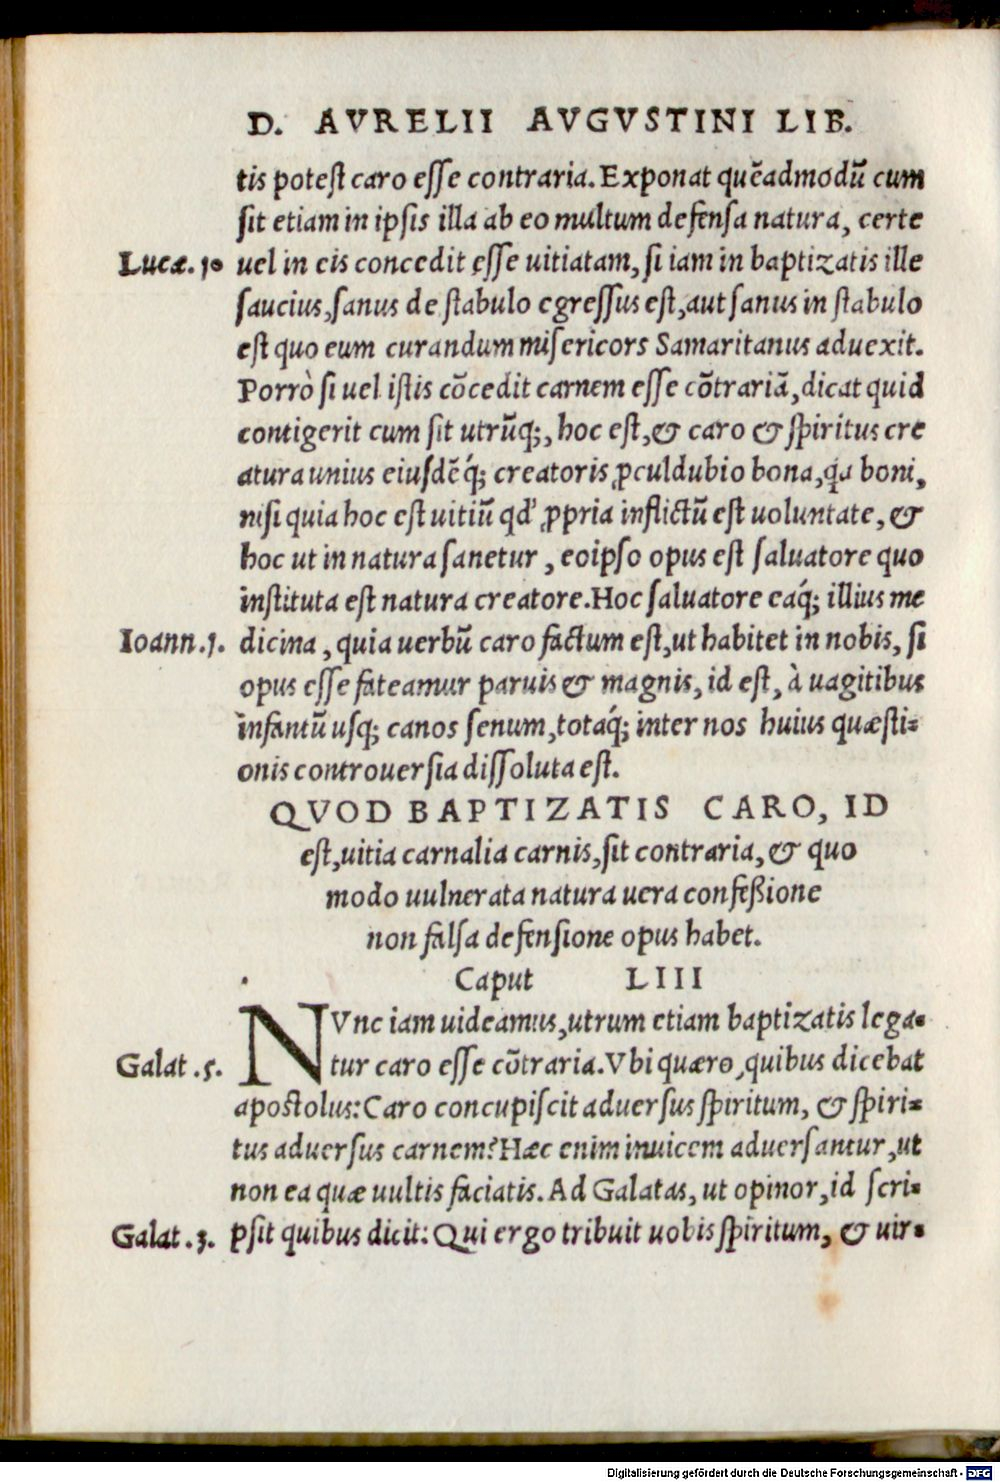 D. AVRELII AVGVSTINI LIB.
tis potest caro esse contraria. Exponat quẽadmodũ cum
sit etiam in ipsis illa ab eo multum defensa natura, certe
Lucæ. 10 uel in eis concedit esse uitiatam, si iam in baptizatis ille
saucius, sanus de stabulo egressus est, aut sanus in stabulo
est quo eum curandum misericors Samaritanus aduexit.
Porrò si uel istis cõcedit carnem esse cõtrariã, dicat quid
contigerit cum sit utrũq;, hoc est, & caro & spiritus cre
atura unius eiusdẽq́; creatoris ꝓculdubio bona, qa boni,
nisi quia hoc est uitiũ qd' ꝓpria inflictũ est uoluntate, &
hoc ut in natura sanetur, eoipso opus est saluatore quo
instituta est natura creatore. Hoc saluatore eaq́; illius me
Ioann. 1. dicina, quia uerbũ caro factum est, ut habitet in nobis, si
opus esse fateamur paruis & magnis, id est, à uagitibus
infantũ usq; canos senum, totaq́; inter nos huius quæsti-
onis controuersia dissoluta est.
QVOD BAPTIZATIS CARO, ID
est, uitia carnalia carnis, sit contraria, & quo
modo uulnerata natura uera confeßione
non falsa defensione opus habet.
Caput LIII
NVnc iam uideamus, utrum etiam baptizatis lega-
Galat. 5. tur caro esse cõtraria. Vbi quæro, quibus dicebat
apostolus: Caro concupiscit aduersus spiritum, & spiri-
tus aduersus carnem? Hæc enim inuicem aduersantur, ut
non ea quæ uultis faciatis. Ad Galatas, ut opinor, id scri-
Galat. 3. psit quibus dicit: Qui ergo tribuit uobis spiritum, & uir-
Digitalisierung gefördert durch die Deutsche Forschungsgemeinschaft - DFG